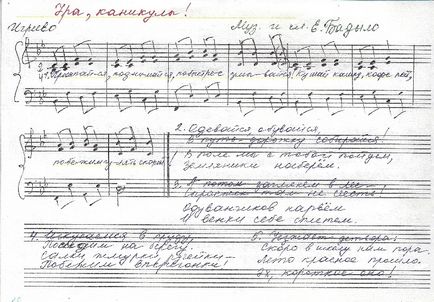 Ура, каникулы!
Игриво
Муз. и сл. Е. Гадыло
1. Просыпайся, поднимайся, побыстрее умывайся! Кушай кашку, кофе пей,
побежим гулять скорей!
2. Одевайся, обувайся,
В путь-дорожку собирайся!
В поле мы с тобой пойдём,
земляники наберём.
3. А потом заглянем в лес
Одуванчиков нарвём
И венки себе сплетём.
4. Искупаемся в пруду,
Посидим на берегу.
Побежим вперегонки!
5.
Скоро в школу нам пора.
Лето красное прошло.
Эх, короткое оно!